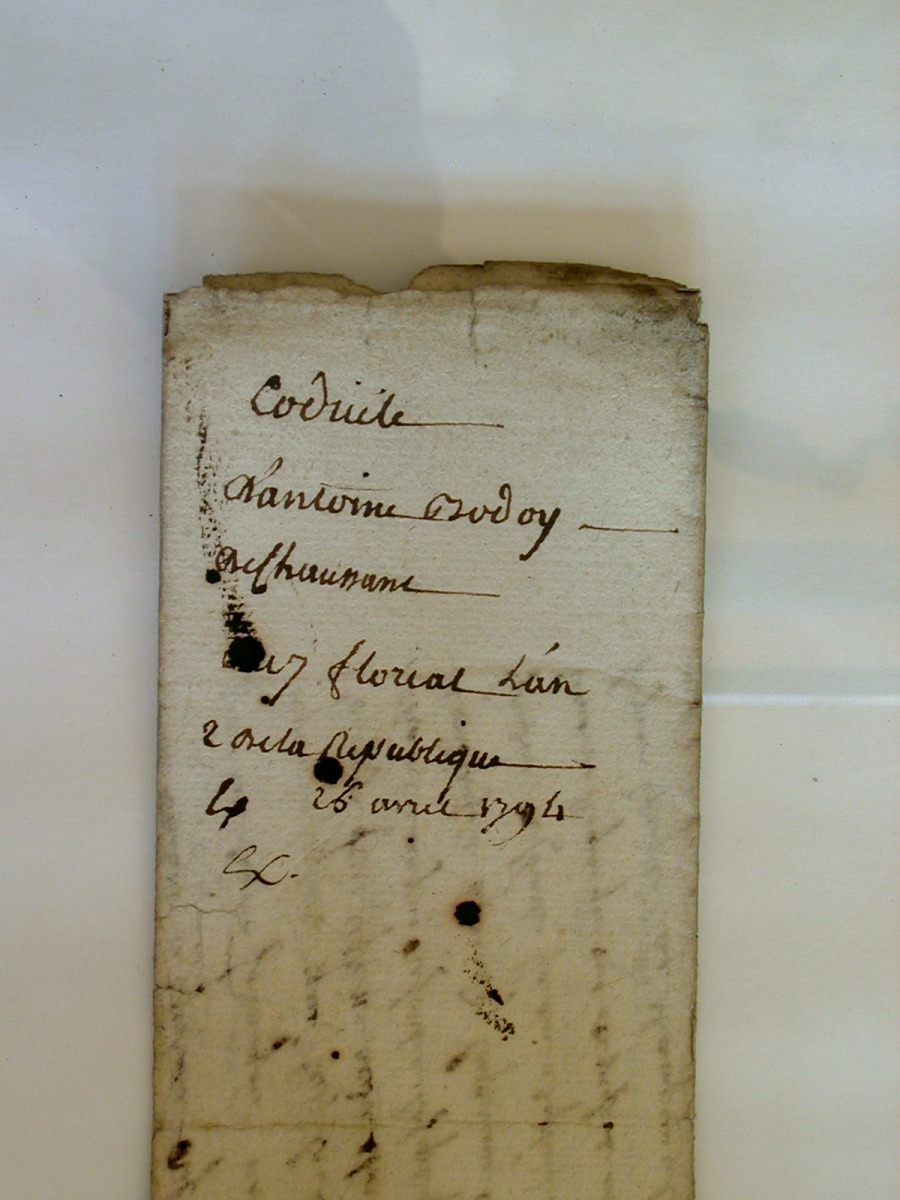 Codicile
d'antoine Bodoy
de Chaussant
du 7 florial L'an
2 de la Republique
26 avril 1794